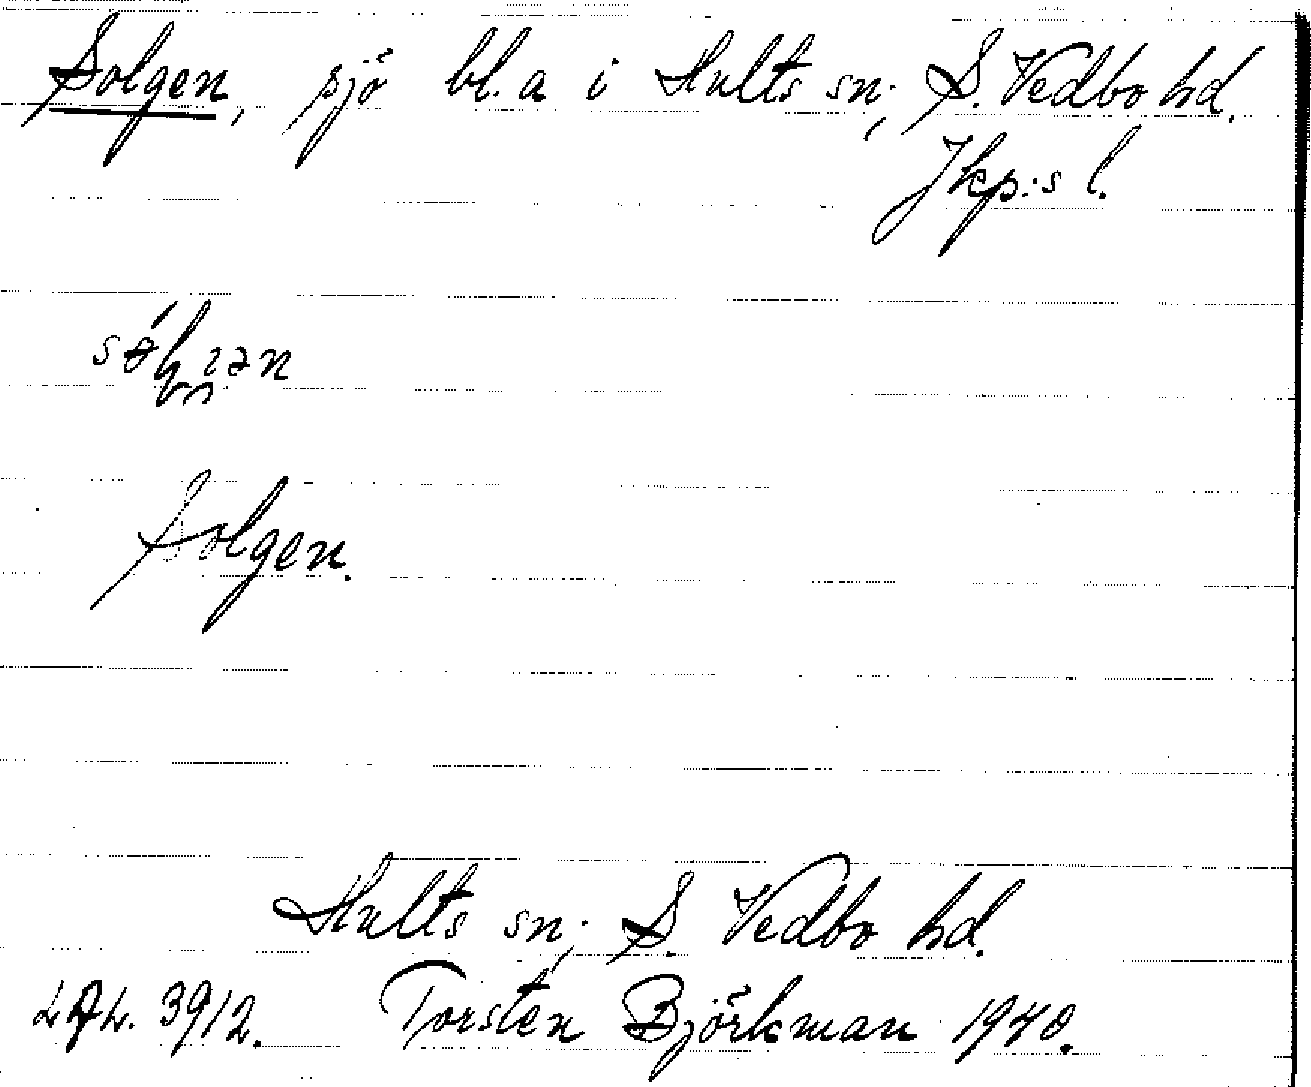 Solgen, sjö bl.a i Hults sn; S. Vedbo hd.
Jkp:s l.
Solgen.
Hults sn; S. Vedbo hd.
3912. Torsten Björkman 1940.